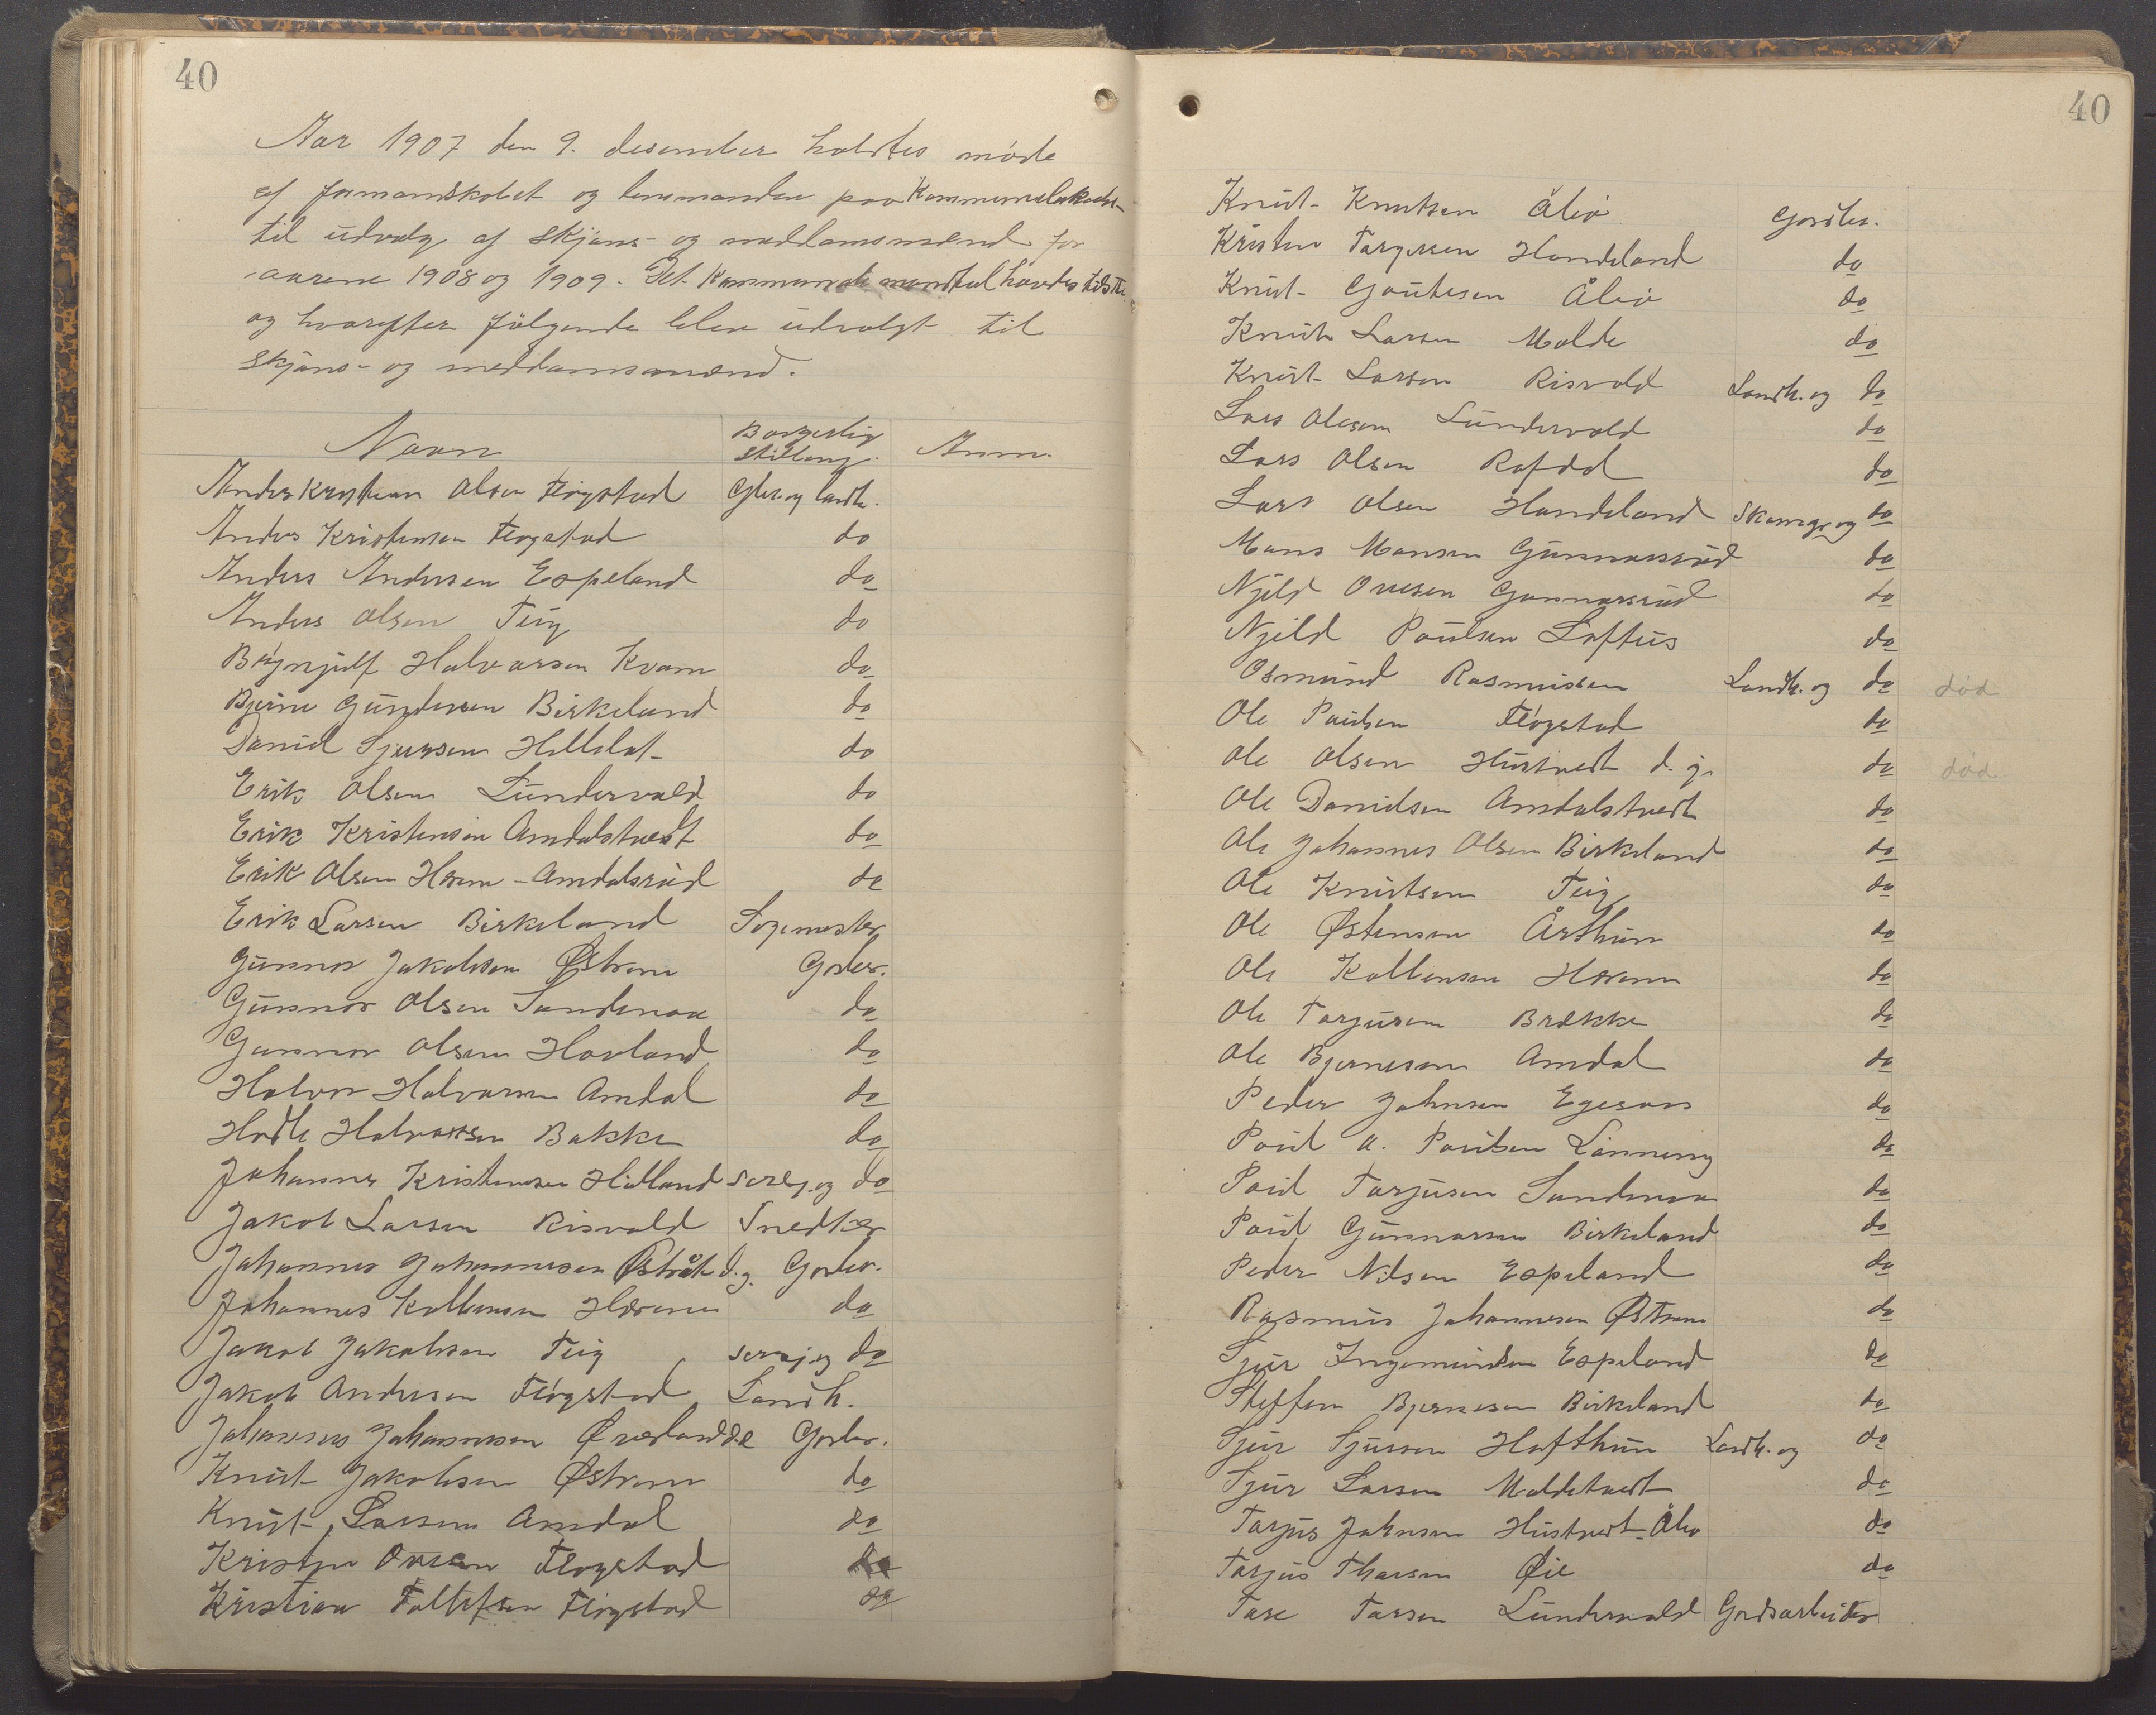 40
Aar 1907 den 9. desember holdtes møde
af formandskabet og lensmanden paa Kommunelokalet
til udvalg af skjøns- og meddomsmænd for
aarene 1908 og 1909. Det Kommunale mandtal havdes tilstede
og hvorefter følgende bleve udvalgt til
skjøns- og meddomsmænd.
Navn Borgerlig stilling. Anm.
Anders Kristian Olsen Fløgstad Gbr. og landh.
Anders Kristensen Fløgstad do
Anders Andersen Espeland do
Anders Olsen Teig do
Brynjulf Halvorsen Kvam do
Bjerne Gundersen Birkeland do
Daniel Sjursen Helleløt do
Erik Olsen Lundervold do
Erik Kristensen Amdalstvedt do
Erik Olsen Hærem-Amdalsrud do
Erik Larsen Birkeland Sogemester
Gunnar Jakobsen Østrem Gorbr.
Gunnar Olsen Sandenaa do
Gunnar Olsen Hovland do
Halvor Halvorsen Amdal do
Hodle Halvorsen Bakke do
Johannes Kristensen Hidland og do
Jakob Larsen Risvold Snedker
Johannes Johannesen Østråt d.y. Gorbr.
Johannes Kolbensen Hærem do
Jakob Jakobsen Teig og do
Jakob Andersen Fløgstad Landh.
Johannes Johannesen Øvreland d.e Gorbr.
Knut Jakobsen Østrem do
Knut Larsen Amdal do
Kristen Ovesen Fløgstad do
Kristian Tollefsen Fløgstad do
40
Knut Knutsen Ålvø Gordbr.
Kristen Targersen Handeland do
Knut Gautesen Ålvø do
Knut Larsen Molde do
Knut Larsen Risvold Landh. og do
Lars Olesen Lundervold do
Lars Olsen Rafdal do
Lars Olsen Handeland og do
Mons Monsen Gunnarsrud do
Njeld Ovesen Gunnarsrud do
Njeld Poulsen Loftus do
Osmund Rasmussen Landh. og do død
Ole Paulsen Fløgstad do
Ole Olsen Hustvedt d. y. do død
Ole Danielsen Amdalstvedt do
Ole Johannes Olsen Birkeland do
Ole Knutsen Teig do
Ole Østensen Årthun do
Ole Kolbensen Hærem do
Ole Torjusen Brække do
Ole Bjernesen Amdal do
Peder Johnsen Egesaas do
Poul A. Poulsen Lønning do
Poul Torjusen Sandenaa do
Poul Gunnarsen Birkeland do
Peder Nilsen Espeland do
Rasmus Johannesen Østrem do
Sjur Ingemundsen Espeland do
Steffen Bjernesen Birkeland do
Sjur Sjursen Hafthun Landh. og do
Sjur Larsen Moldetvedt do
Torjus Johnsen Hustvedt-Ålvø do
Torjus Thorsen Øie do
Tore Torsen Lundervold Gordsarbeider